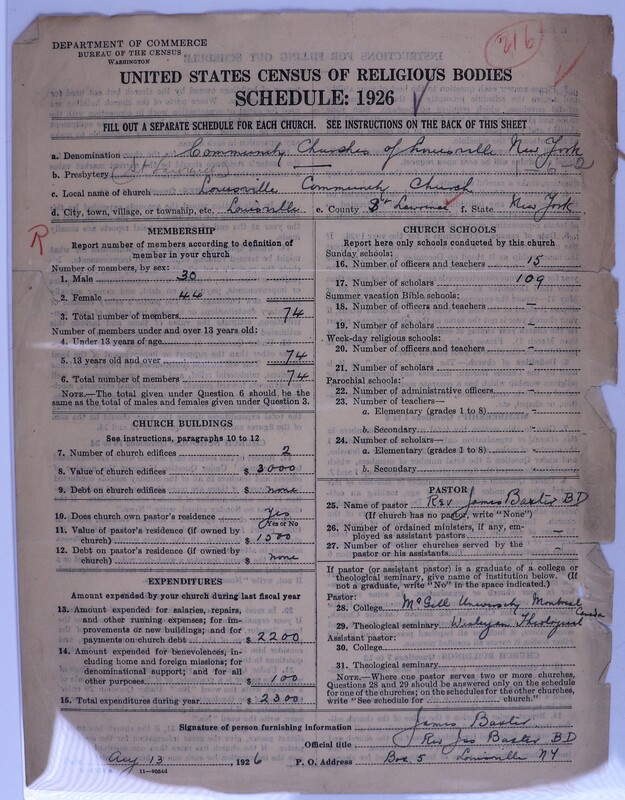 216
DEPARTMENT OF COMMERCE
BUREAU OF THE CENSUS
WASHINGTON
UNITED STATES CENSUS OF RELIGIOUS BODIES
SCHEDULE: 1926
FILL OUT A SEPARATE SCHEDULE FOR EACH CHURCH. SEE INSTRUCTIONS ON THE BACK OF THIS SHEET
a. Denomination Community Churches of Louisville New York
b. Presbytery (St Lawrence) 1-6-2
c. Local name of church Louisville Community Church
d. City, town, village, or township, etc. Louisville e. County St Lawrence f. State New York
R
MEMBERSHIP
Report number of members according to definition of
member in your church
Number of members, by sex:
1. Male 30
2. Female 44
3. Total number of members 74
Number of members under and over 13 years old:
4. Under 13 years of age
5. 13 years old and over 74
6. Total number of members 74
NOTE.—The total given under Question 6 should be the
same as the total of males and females given under Question 3.
CHURCH BUILDINGS
See instructions, paragraphs 10 to 12
7. Number of church edifices 2
8. Value of church edifices $ 3000
9. Debt on church edifices $ none
10. Does church own pastor's residence Yes
Yes or No
11. Value of pastor's residence (if owned by
church) $ 1500
12. Debt on pastor's residence (if owned by
church) $ none
EXPENDITURES
Amount expended by your church during last fiscal year
13. Amount expended for salaries, repairs,
and other running expenses; for im-
provements or new buildings; and for
payments on church debt $ 2200
14. Amount expended for benevolences, in-
cluding home and foreign missions; for
denominational support; and for all
other purposes $ 100
15. Total expenditures during year $ 2300
CHURCH SCHOOLS
Report here only schools conducted by this church
Sunday schools:
16. Number of officers and teachers 15
17. Number of scholars 109
Summer vacation Bible schools:
18. Number of officers and teachers –
19. Number of scholars –
Week-day religious schools:
20. Number of officers and teachers –
21. Number of scholars –
Parochial schools:
22. Number of administrative officers –
23. Number of teachers—
a. Elementary (grades 1 to 8) –
b. Secondary –
24. Number of scholars—
a. Elementary (grades 1 to 8) –
b. Secondary –
PASTOR
25. Name of pastor Rev James Baxter BD
(If church has no pastor, write "None")
26. Number of ordained ministers, if any, em-
ployed as assistant pastors –
27. Number of other churches served by the
pastor or his assistants –
If pastor (or assistant pastor) is a graduate of a college or
theological seminary, give name of institution below. (If
not a graduate, write "No" in the space indicated.)
Pastor:
28. College McGill University Montreal
Canada
29. Theological seminary Wesleyan Theological
Assistant pastor:
30. College
31. Theological seminary
NOTE.—Where one pastor serves two or more churches,
Questions 28 and 29 should be answered only on the schedule
for one of the churches; on the schedules for the other churches,
write "See schedule for church."
Signature of person furnishing information James Baxter
Official title Rev Jas Baxter BD
Aug 13, 1926 P. O. Address Box 5 Louisville NY